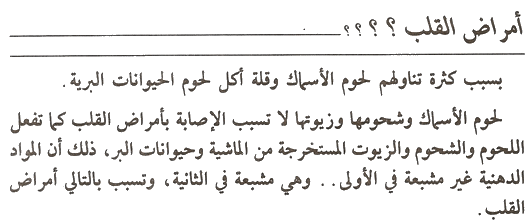 أمراض القلب ؟ ؟ ؟؟
بسبب كثرة تناولهم لحوم الأسماك وقلة أكل لحوم الحيوانات البرية.
لحوم الأسماك وشحومها وزيوتها لا تسبب الإصابة بأمراض القلب كما تفعل
اللحوم والشحوم والزيوت المستخرجة من الماشية وحيوانات البر، ذلك أن المواد
الدهنية غير مشبعة في الأولى.. وهي مشبعة في الثانية، وتسبب بالتالي أمراض
القلب.